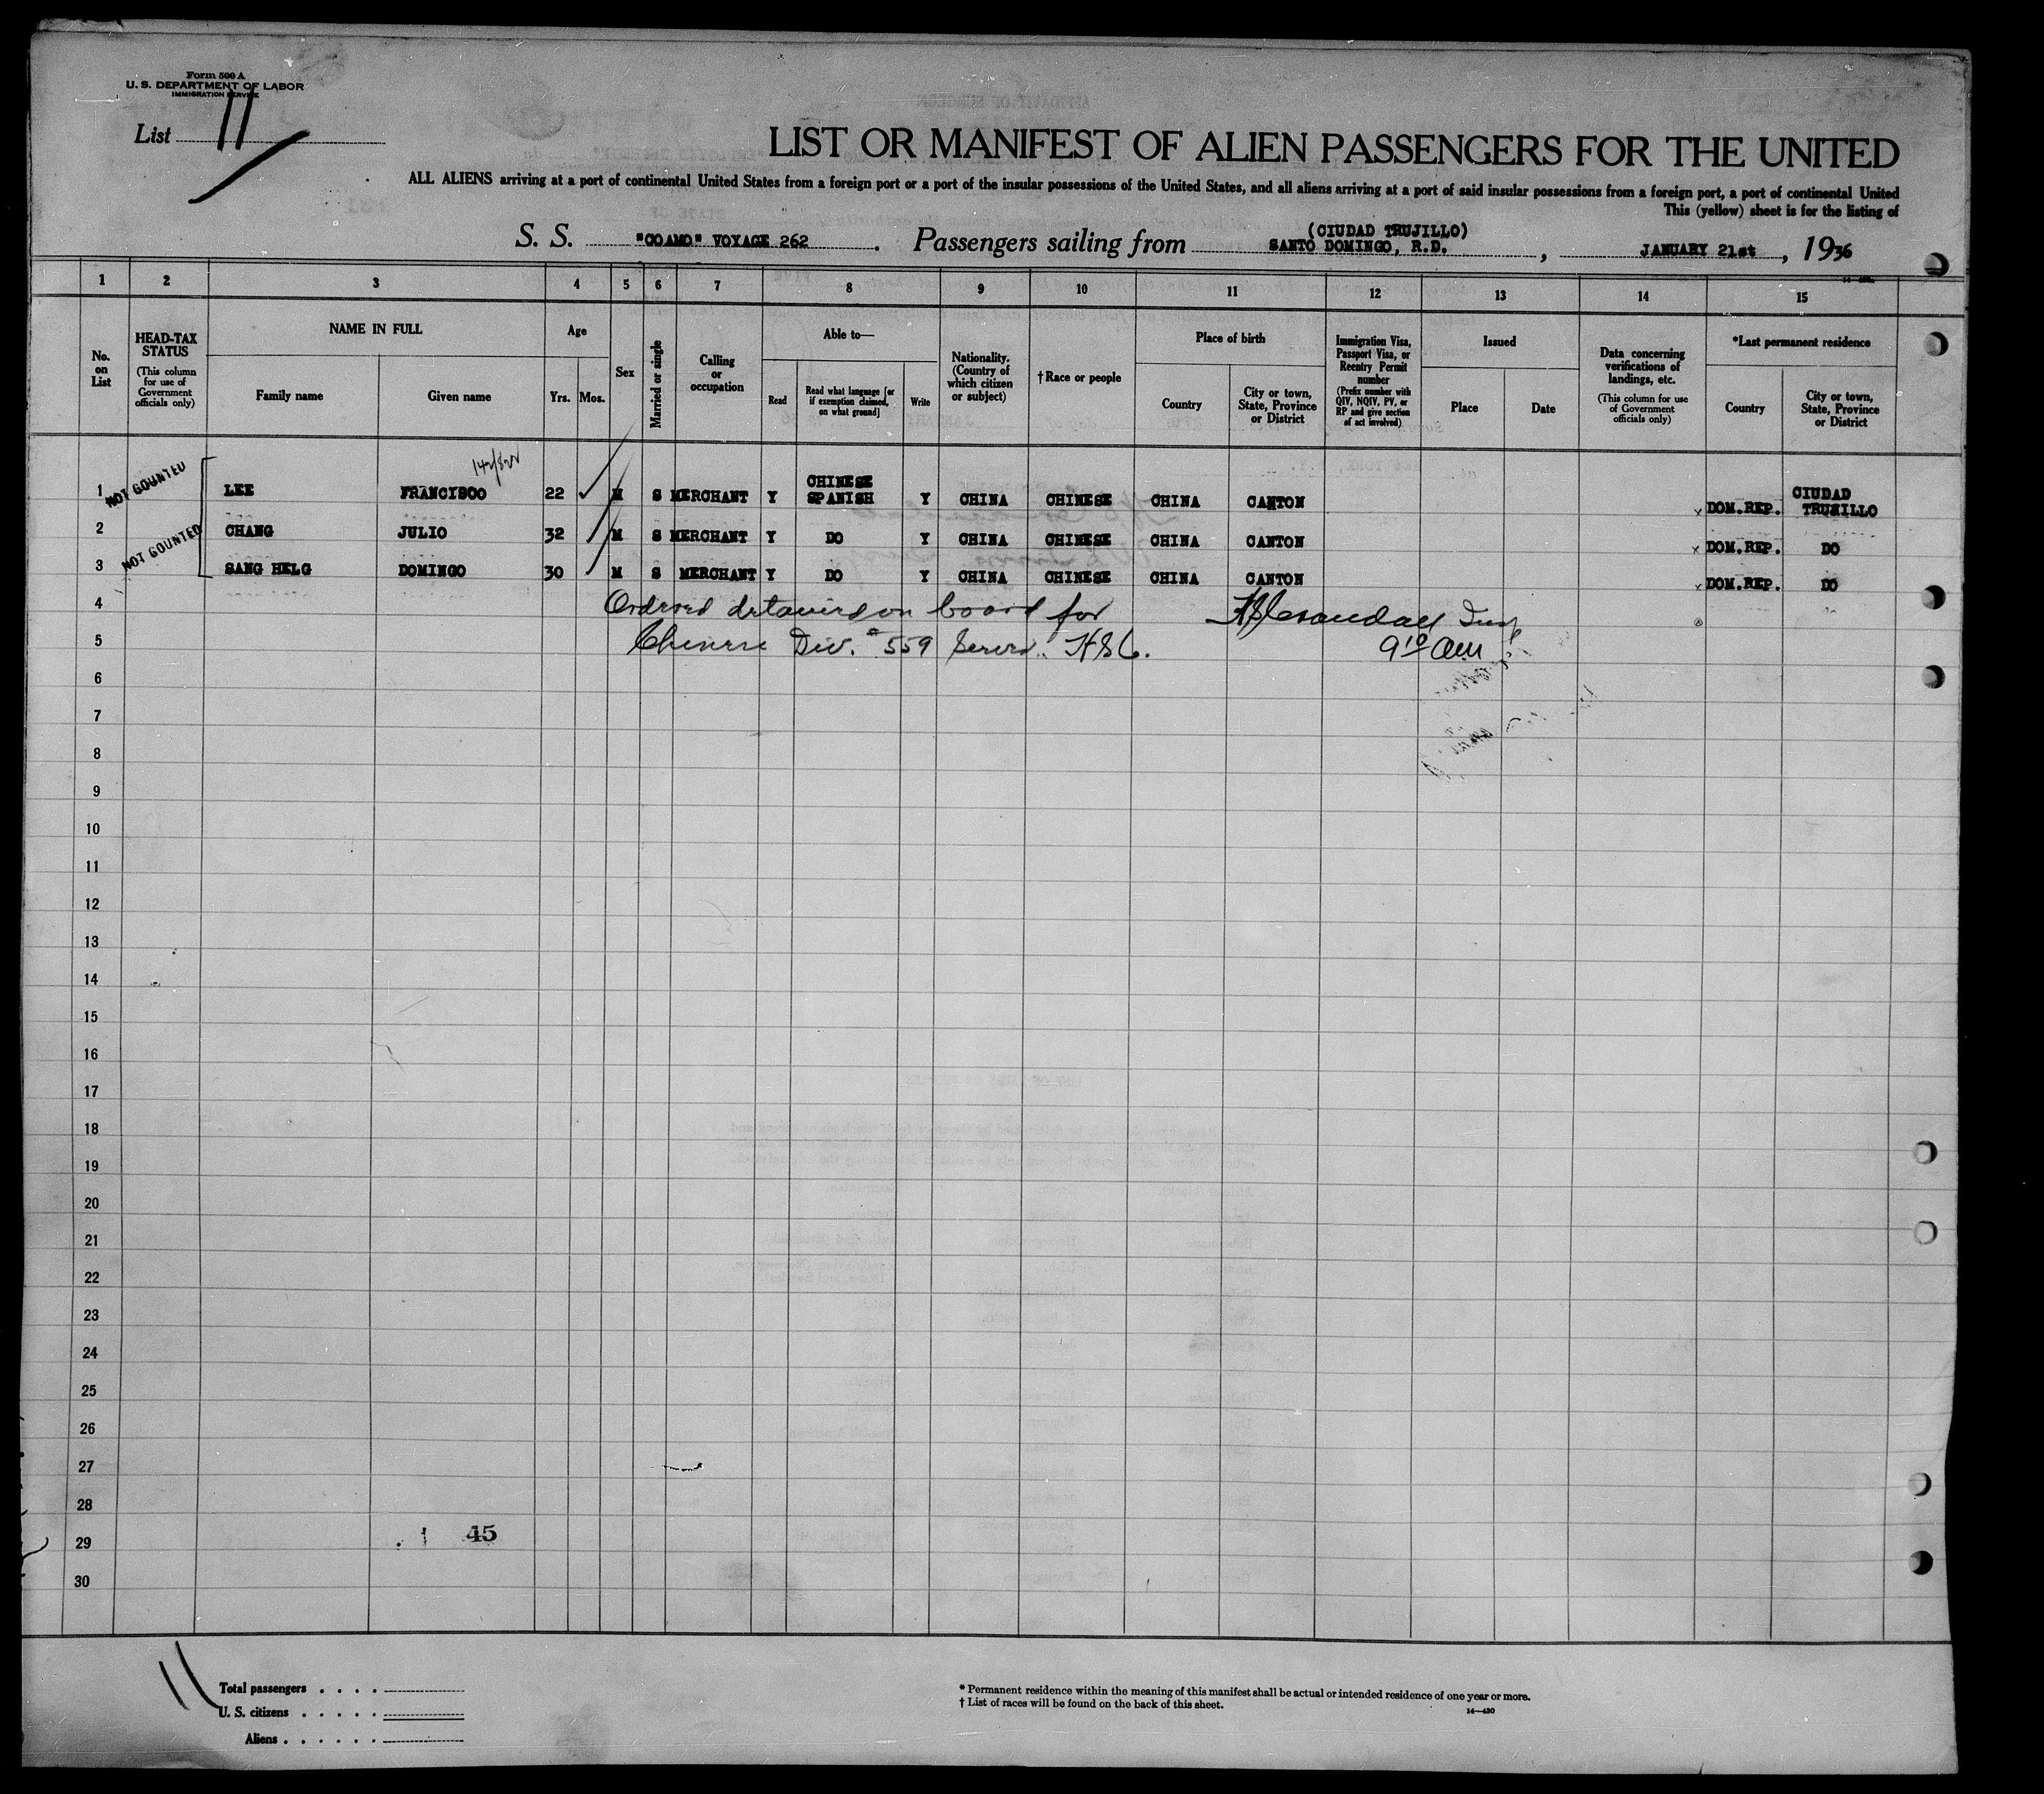 Form 500 A
U. S. DEPARTMENT OF LABOR
IMMIGRATION SERVICE
List 11
LIST OR MANIFEST OF ALIEN PASSENGERS FOR THE UNITED
ALL ALIENS arriving at a port of continental United States from a foreign port or a port of the insular possessions of the United States, and all aliens arriving at a port of said insular possessions from a foreign port, a port of continental United
This (yellow) sheet is for the listing of
(CIUDAD TRUJILLO)
S. S. "COAMO" VOYAGE 262. Passengers sailing from SANTO DOMINGO, R.D., JANUARY 21st, 1936
1 2 3 4 5 6 7 8 9 10 11 12 13 14 15
No. on List
HEAD-TAX STATUS
(This column for use of Government officials only)
NAME IN FULL
Family name
Given name
Age
Yrs.
Mos.
Sex
Married or single
Calling or occupation
Able to—
Read
Read what language [or if exemption claimed, on what ground]
Write
Nationality. (Country of which citizen or subject)
† Race or people
Place of birth
Country
City or town, State, Province or District
Immigration Visa, Passport Visa, or Reentry Permit number
(Prefix number with QIV, NQIV, PV, or RP and give section of act involved)
Issued
Place
Date
Data concerning verifications of landings, etc.
(This column for use of Government officials only)
*Last permanent residence
Country
City or town, State, Province or District
1 NOT COUNTED LEE FRANCISCO 22 M S MERCHANT Y CHINESE SPANISH Y CHINA CHINESE CHINA CANTON x DOM.REP. CIUDAD TRUJILLO
2 CHANG JULIO 32 M S MERCHANT Y DO Y CHINA CHINESE CHINA CANTON x DOM.REP. DO
3 NOT COUNTED SANG HELG DOMINGO 30 M S MERCHANT Y DO Y CHINA CHINESE CHINA CANTON x DOM.REP. DO
4 Ordered detained on board for
5 Chinese Div. #559 Served. HSC. 9 10 AM
6
7
8
9
10
11
12
13
14
15
16
17
18
19
20
21
22
23
24
25
26
27
28
29 45
30
11
Total passengers . . . .
U. S. citizens . . . . .
Aliens . . . . . .
* Permanent residence within the meaning of this manifest shall be actual or intended residence of one year or more.
† List of races will be found on the back of this sheet.
14—430